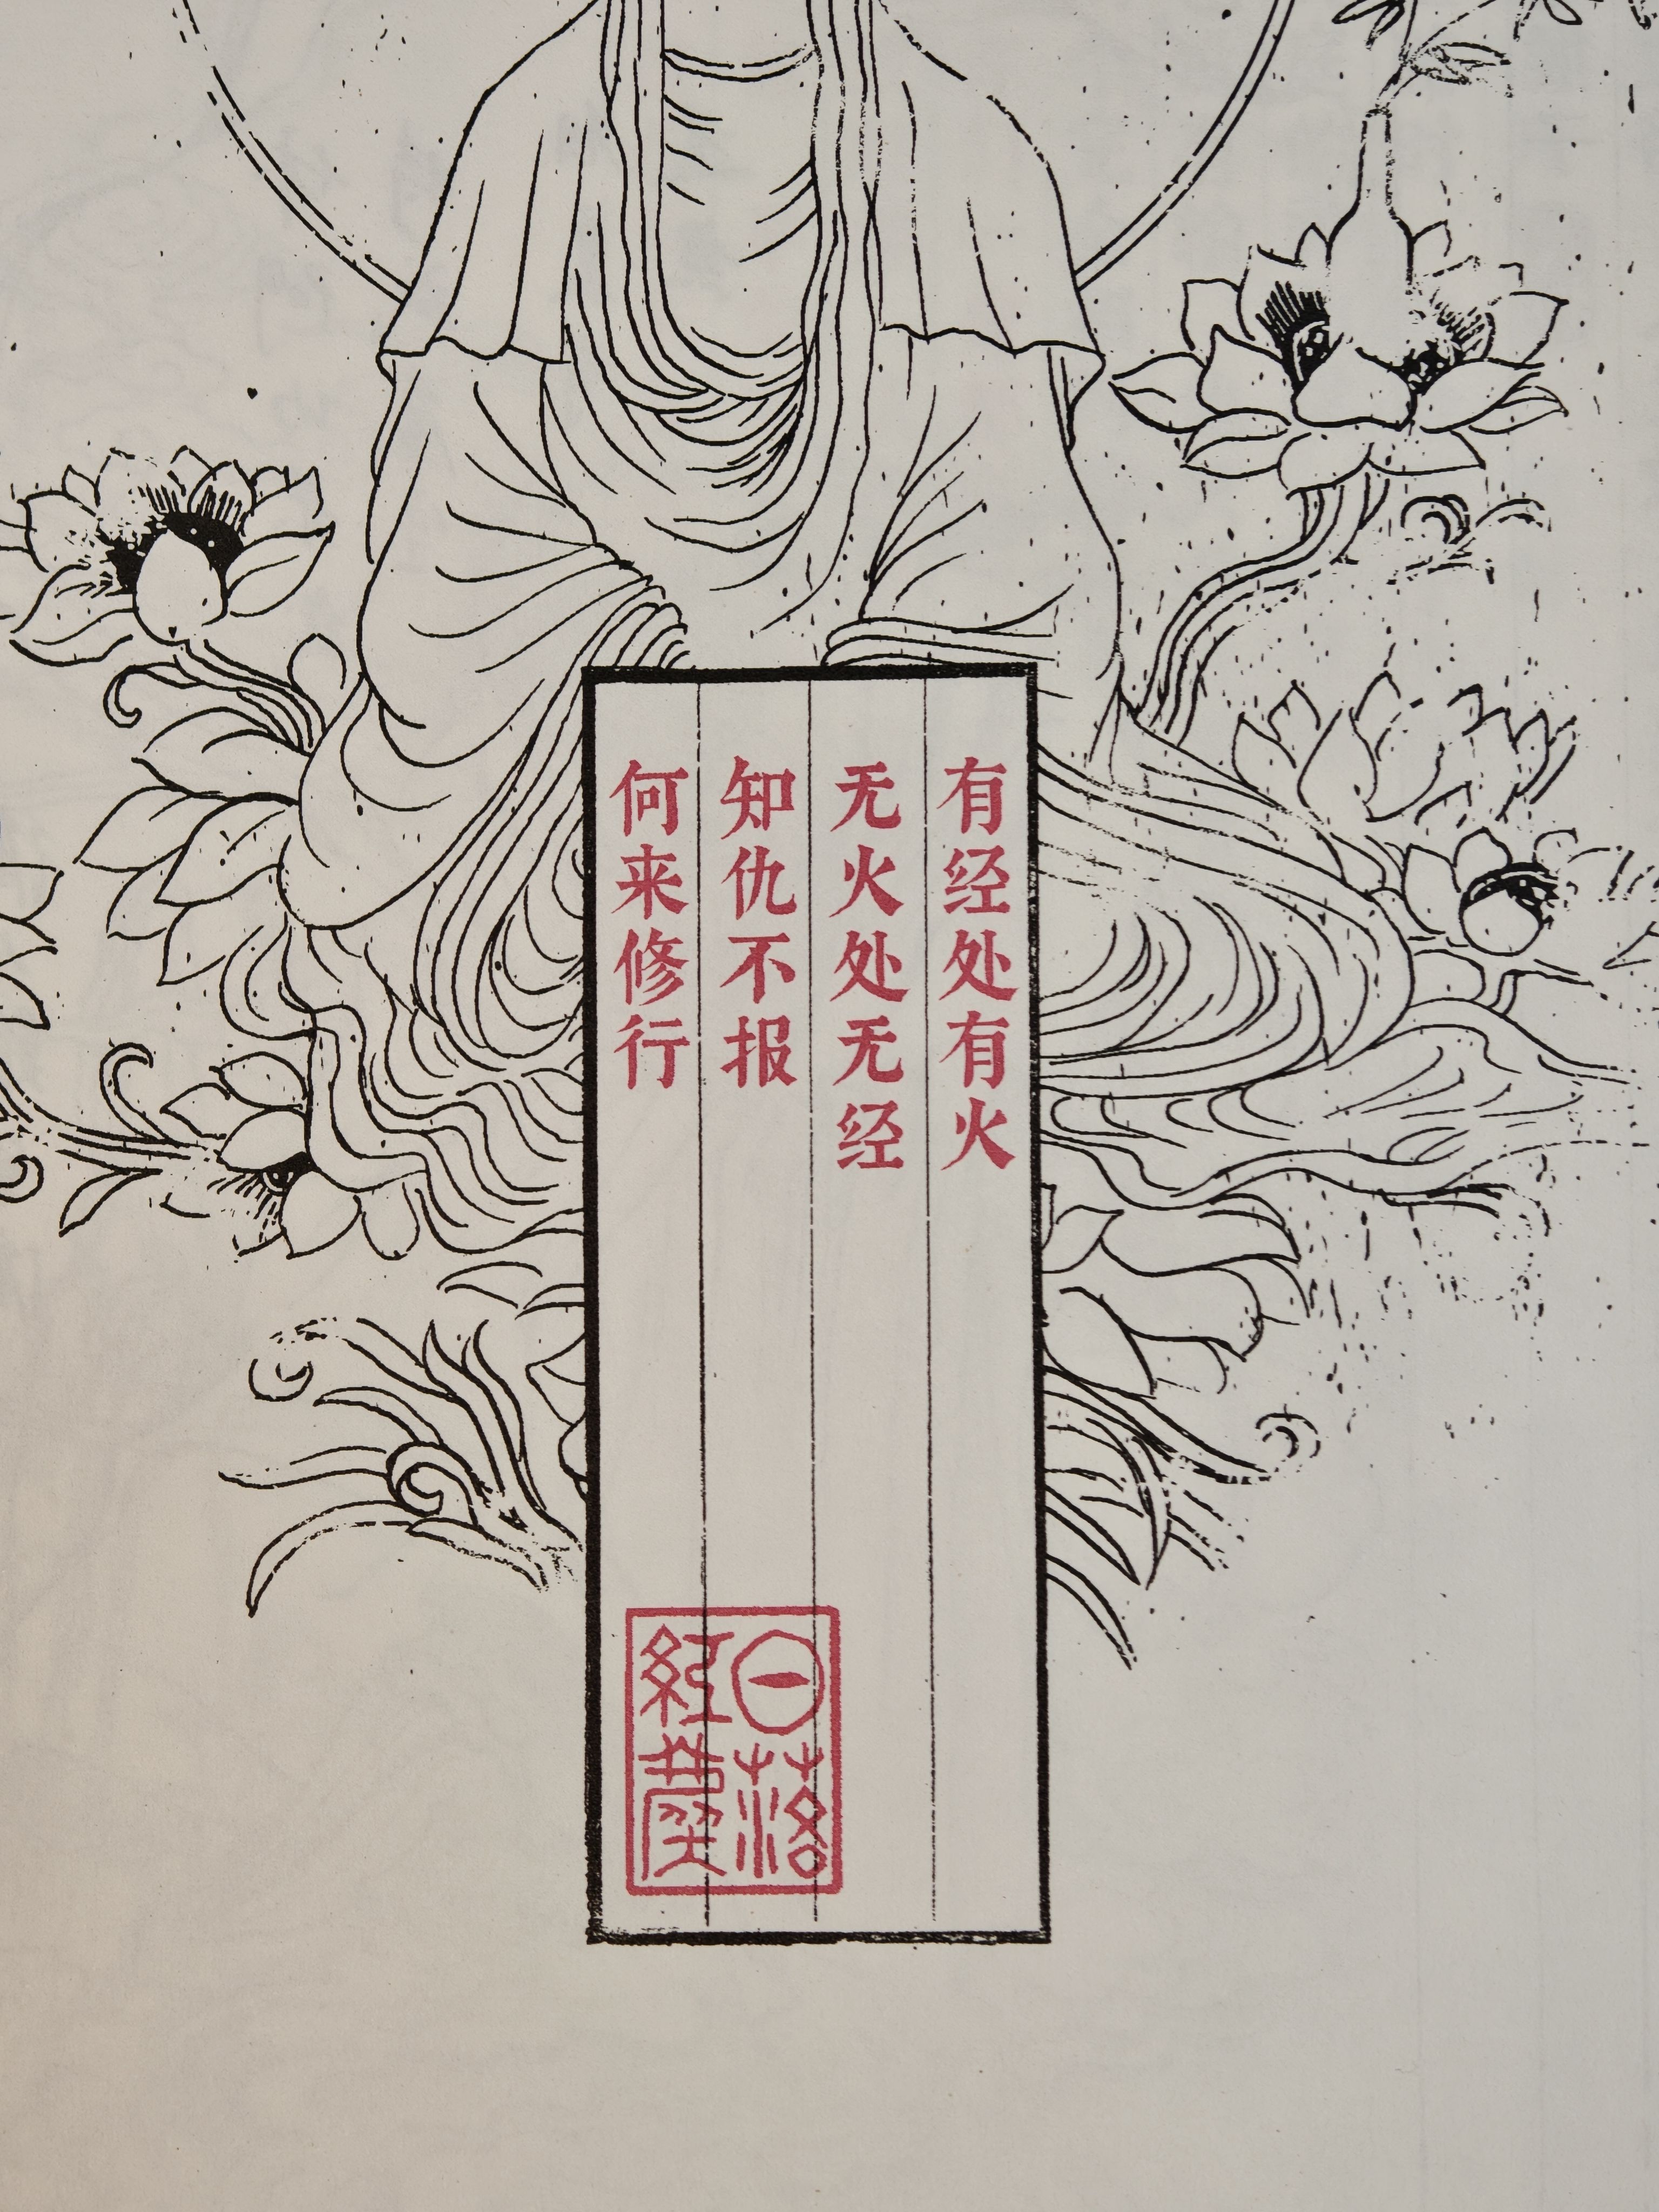 有经处有火
无火处无经
知仇不报
何来修行
日落
紅塵